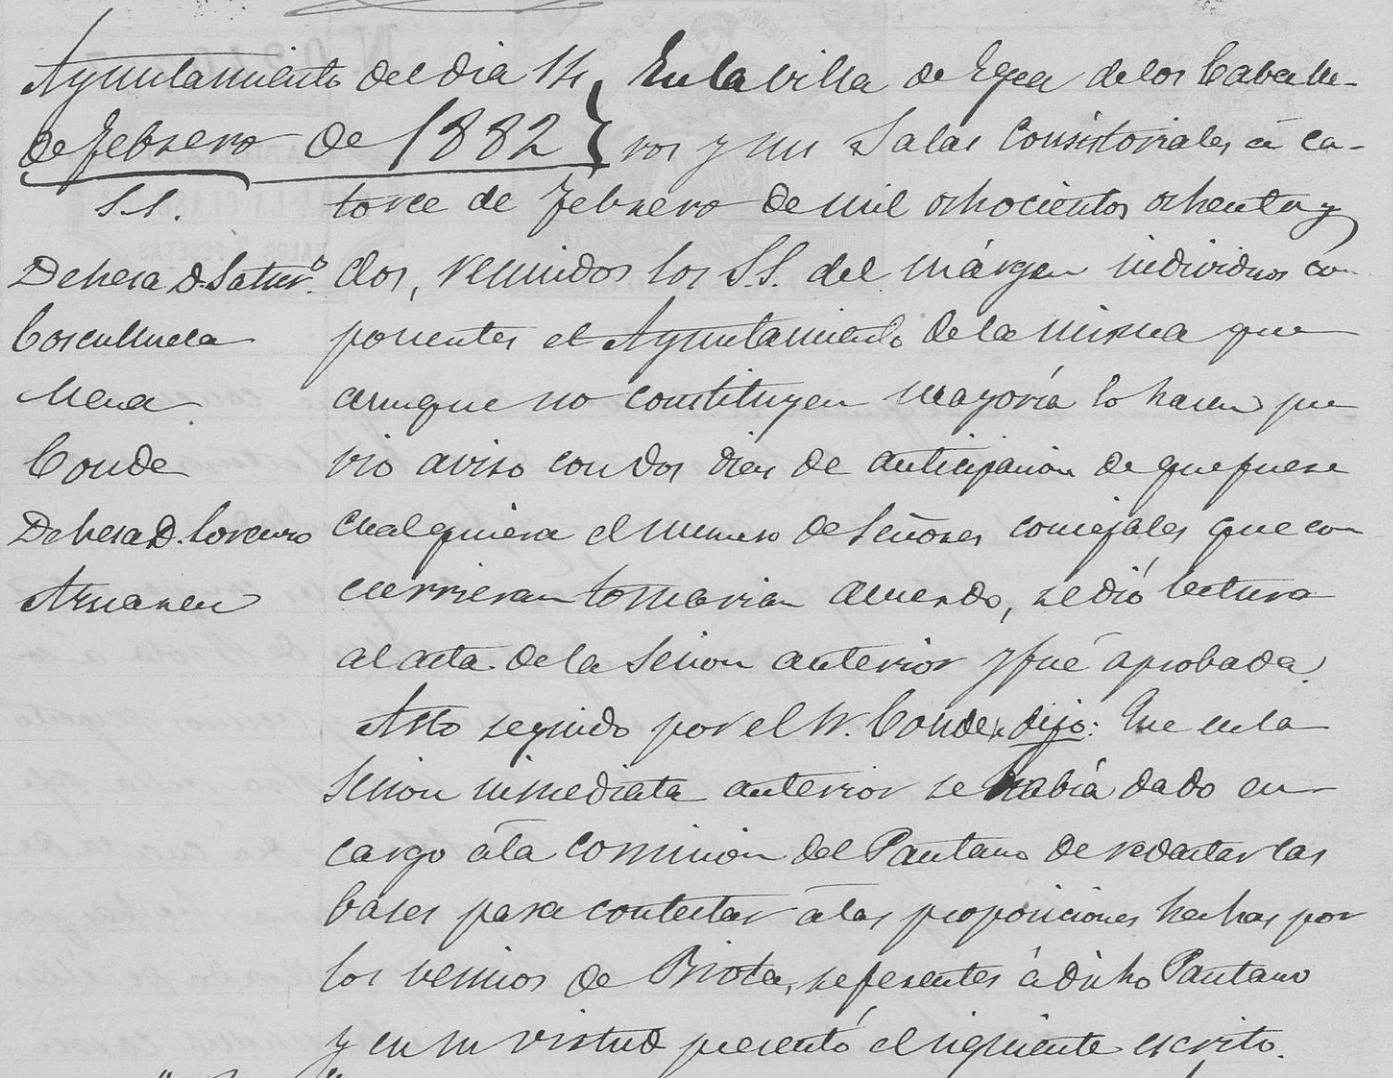 Ayuntamiento del dia 14
de Febrero de 1882
S.S.
Dehesa D. Saturº.
Cosculluela
Mena
Conde
Dehesa D. Lorenzo
Aznarez
En la villa de Egea de los Caballe-
ros y sus Salas Consistoriales á ca-
torce de Febrero de mil ochocientos ochenta y
dos, reunidos los S.S. del márgen individuos com
ponentes el Ayuntamiento de la misma que
aunque no constituyen mayoría lo hacen pre
vio aviso con dos dias de anticipacion de que fuese
cualquiera el numero de Señores concejales que con
currieran tomarian acuerdo, se dió lectura
al acta de la sesion anterior y fué aprobada.
Acto seguido por el Sr. Conde, dijo: Que en la
sesion inmediata anterior se había dado en-
cargo á la comision del Pantano de redactar las
bases para contestar á las proposiciones hechas por
los vecinos de Biota, referentes á dicho Pantano
y en su virtud presentó el siguiente escrito.